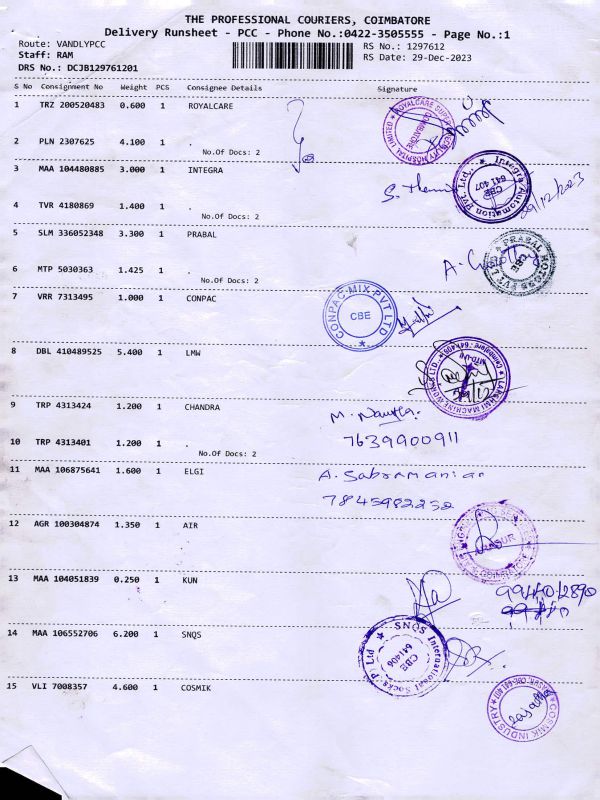 THE PROFESSIONAL COURIERS, COIMBATORE
Delivery Runsheet - PCC - Phone No.:0422-3505555 - Page No.:1
Route: VANDLYPCC
RS No.: 1297612
Staff: RAM
RS Date: 29-Dec-2023
DRS No.: DCJB129761201
S No Consignment No Weight PCS Consignee Details Signature
1 TRZ 200520483 0.600 1 ROYALCARE
2 PLN 2307625 4.100 1 .
No.Of Docs: 2
3 MAA 104480885 3.000 1 INTEGRA
29/12/2023
4 TVR 4180869 1.400 1 .
No.Of Docs: 2
5 SLM 336052348 3.300 1 PRABAL
6 MTP 5030363 1.425 1 .
No.Of Docs: 2
7 VRR 7313495 1.000 1 CONPAC
CONPAC-MIX-PVT LTD
CBE
8 DBL 410489525 5.400 1 LMW
9 TRP 4313424 1.200 1 CHANDRA
7639900911
10 TRP 4313401 1.200 1 .
No.Of Docs: 2
11 MAA 106875641 1.600 1 ELGI
A. Sabaramanian
7845982252
12 AGR 100304874 1.350 1 AIR
13 MAA 104051839 0.250 1 KUN
14 MAA 106552706 6.200 1 SNQS
SNQS International Socks P Ltd
CBE
641406
15 VLI 7008357 4.600 1 COSMIK
COSMIK INDUSTRY